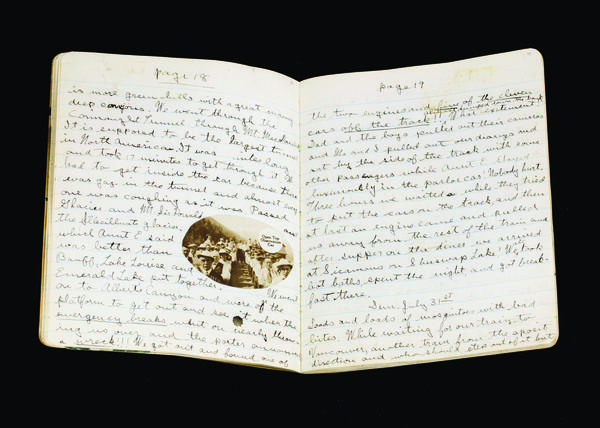 page 18
is more green hills with a great many
deep canyons. We went through the
Connaught Tunnel through Mt. MacDonald
It is supposed to be the largest tunnel
in North America. It was miles long
and took 17 minutes to get through it. We
had to get inside the car because there
was gas in the tunnel and almost every
one was coughing as it was. Passed
Glacier and Mt Sir Donald and
the Illecillinets glacier,
which Aunt E said
was better than
Banff, Lake Louise and
Emerald Lake put together. We went
on to Alberta Canyon and were of the
platform to get out and see it when the
emergency breaks went on nearly throw-
ing us over and the porter announc
a wreck!!! We got out and found one of
Open Top
Observation
Car
page 19
the two engines and five of the eleven
cars off the track!! What excitement
Dad and the boys pulled out their cameras
and Flo and I pulled out our diarys and
sat by the side of the track with some
other Passengers while Aunt E stayed
luxuriously in the parlor car! Nobody hurt.
Three hours we waited while they tried
to put the cars on the track, and then
at last an engine came and pulled
us away from the rest of the train and
after supper on the diner we arrived
at Sicamous on Shuswap Lake. We took
hot baths, spent the night and got break-
fast there.
Sun. July 31st
Loads and loads of mosquitoes with bad
bites. While waiting for our train to
Vancouver, another train from the aposit
direction and whom should step out of it but